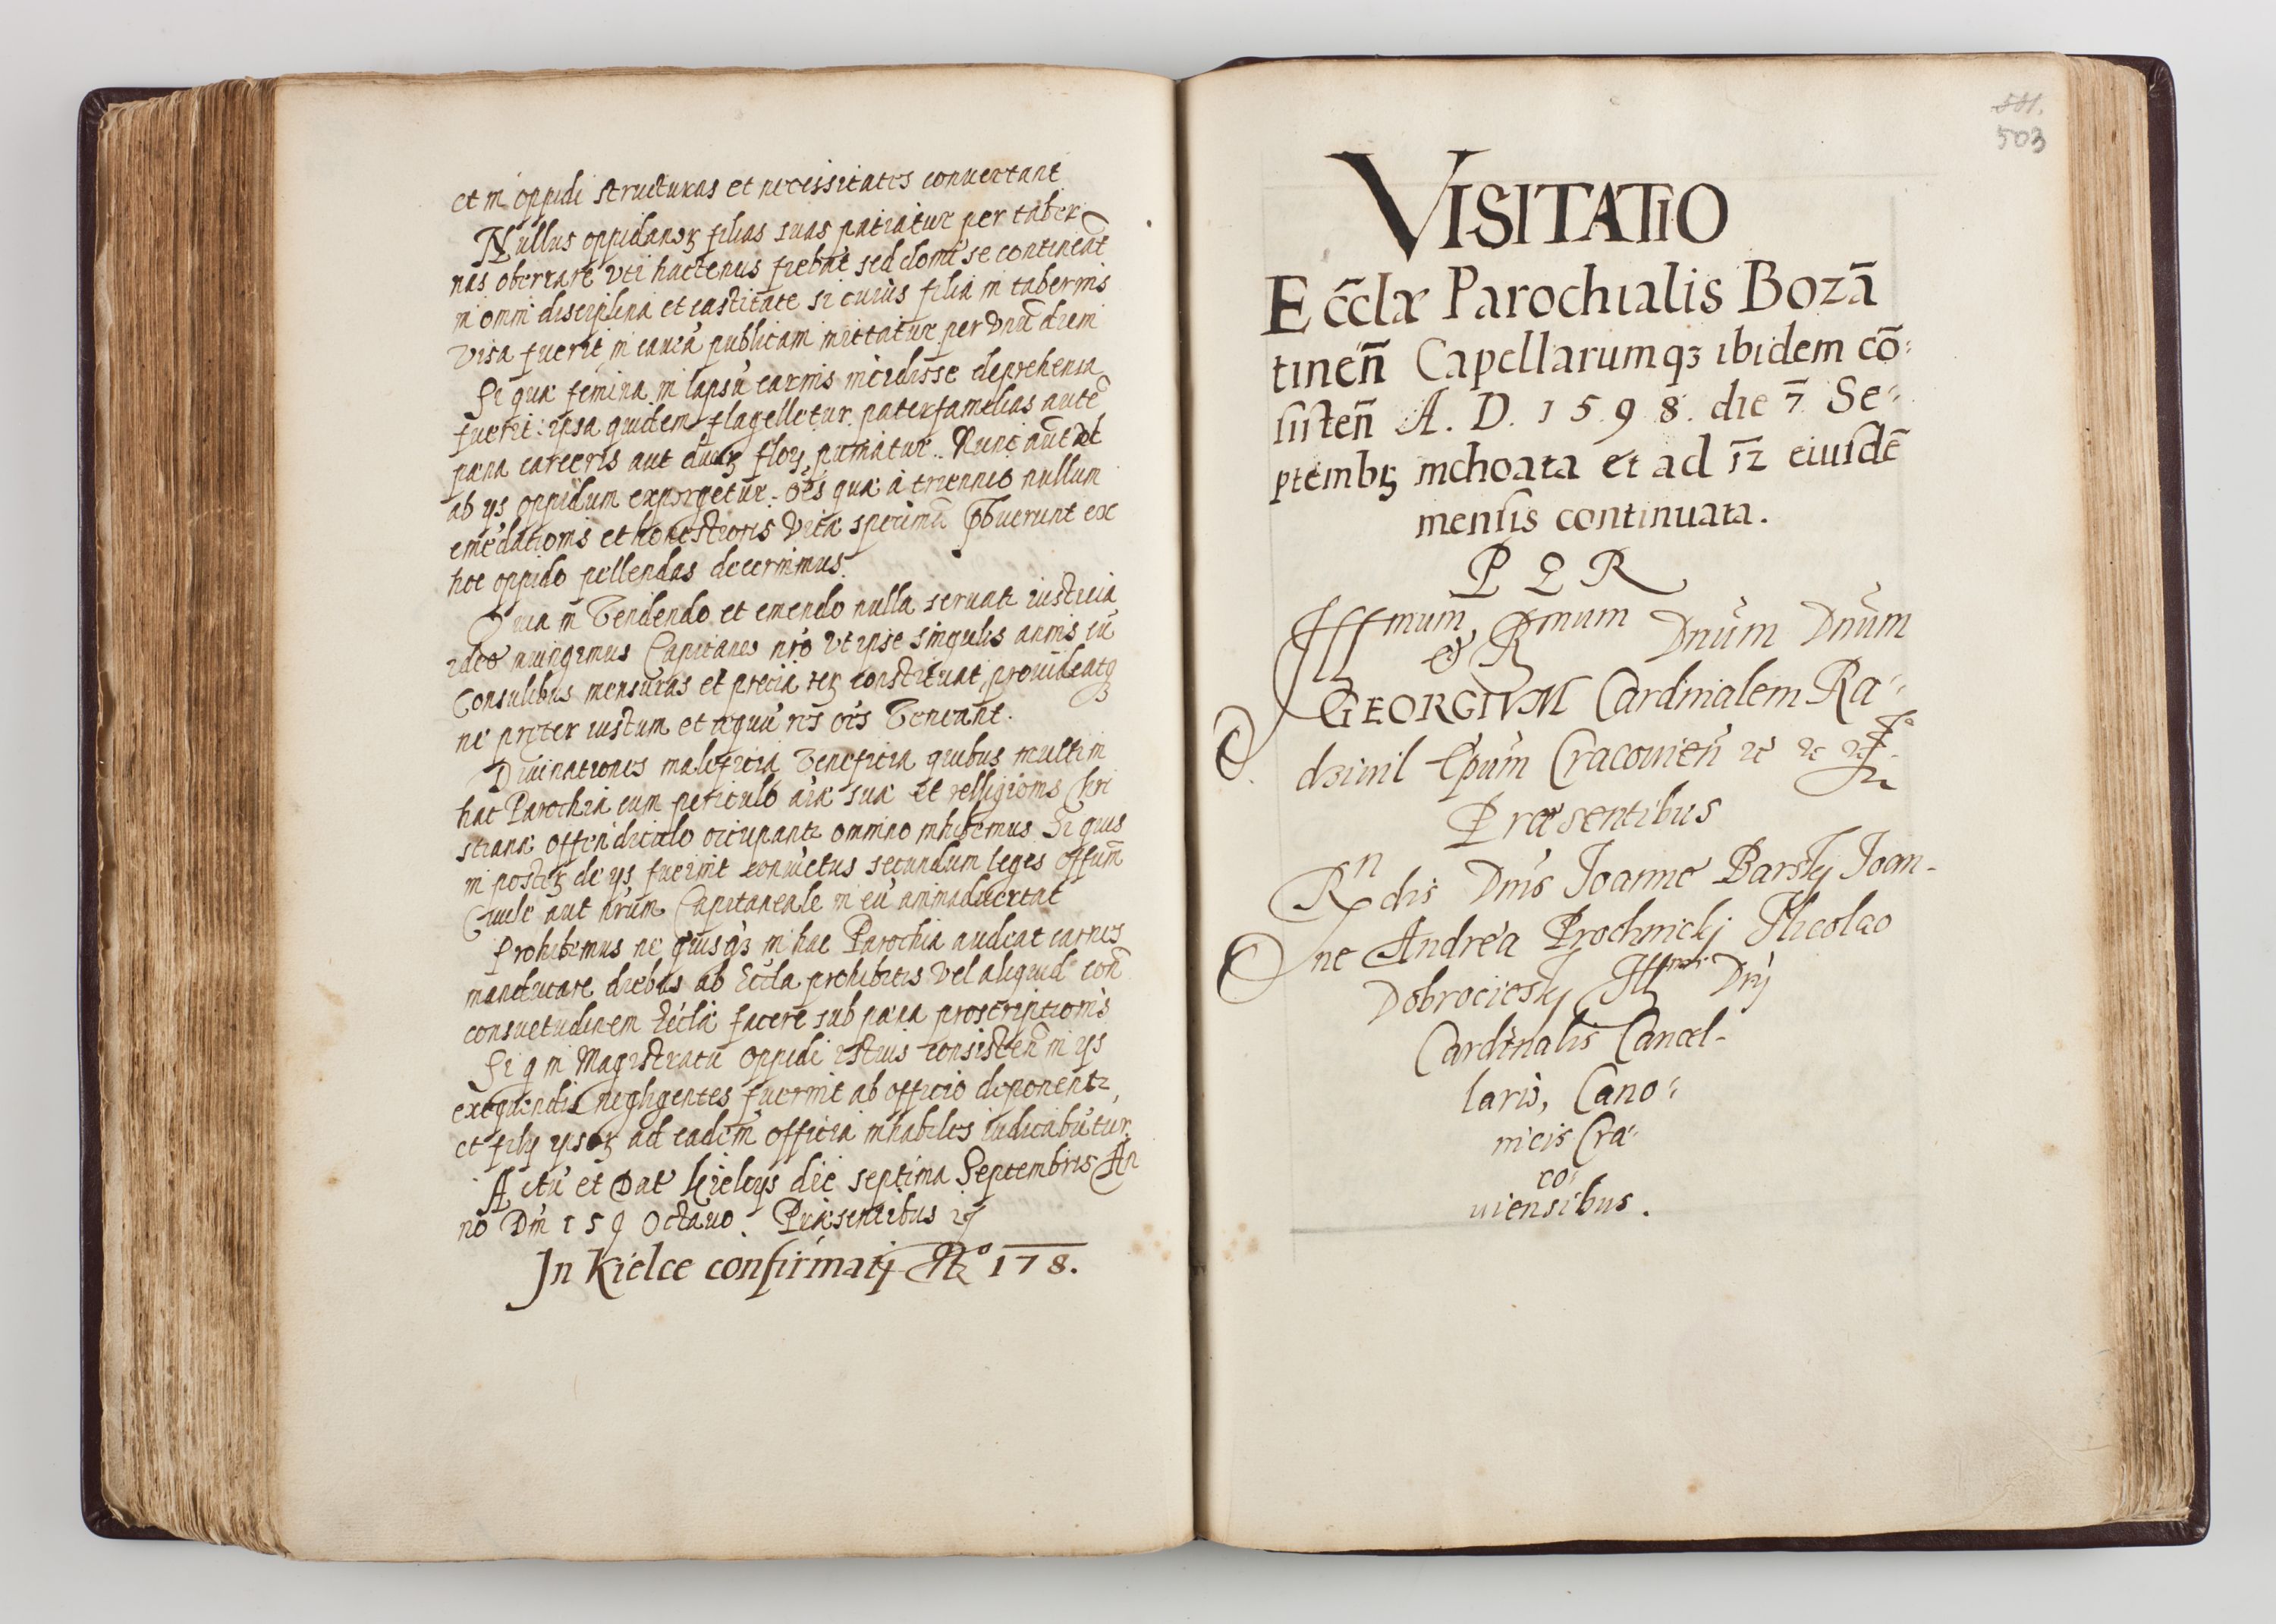 et in oppidi structuras et necessitates conuertant
Nullus oppidanoꝝ filias suas patiatur per taber
nas oberrare vti hactenus fiebat sed domi se contineāt
in omni disciplina et castitate si cuius filia in tabernis
visa fuerit in caueā publicam mittatur per vnū diem
Si qua femina in lapsū carnis incidisse deprehensa
fuerit: ipsa quidem flagelletur paterfamelias autē
pæna carceris aut duoꝝ floꝝ puniatur. Nunc aut vt
ab ijs oppidum expurgetur. oēs quæ à triennio nullum
emēdationis et honestioris vitæ specimē pbuerunt ex
hoc oppido pellendas decernimus.
Quia in vendendo et emendo nulla seruatr iusticia
ideo niungimus Capitaneo nrō vt ipse singulis annis cū
Consulibus mensuras et precia reꝝ constituat, prouideatqꝫ
ne pręter iustum et æquū res oēs veneant.
Diuinationes maleficia veneficia quibus multi in
hac Parochia cum periculo aīæ suæ et relligionis Chri
stianæ offendiculo occupantr omnino inhibemus Si quis
in posteꝝ de ijs fuerint conuictus secundum leges offūm
Ciuile aut nrūm Capitaneale in eū animaduertat
Prohibemus ne quisqꝫ in hac Parochia audeat carnes
manducare diebus ab Eccla prohibitis vel aliquid con
consuetudinem Ecclæ facere sub pæna proscriptionis
Si q in Magistratu oppidi istius consisteñ in ijs
exequendis negligentes fuerint ab officio deponentr,
et filij ipsoꝝ ad eadem officia inhabiles iudicabūtur.
Actū et Dat Kielcijs die septima Septembris An
nō Dni 1 5 9 Octauo. Præsentibus
Jn Kielce confirmatj Nº 178.
501.
503
VISITATIO
Eccĺæ Parochialis Bozā
tineñ Capellarumqꝫ ibidem cō=
sisteñ A. D. 1 5 9 8. die 7 Se=
ptembꝫ inchoata et ad 12 eiusdē
mensis continuata.
PER
Jllmum & Rmum Dnūm Dnūm
GEORGIVM Cardinalem Ra=
dziuil Epūm Cracouieñ ꝛc ꝛc ꝛc
Præsentibus
Rndis Dnis Joanne Barskj Joan-
ne Andrea Prochnickj Nicolao
Dobrocieskj Jllmi Dnj
Cardinalis Cancel-
lario, Cano=
nicis Cra=
co=
uiensibus.